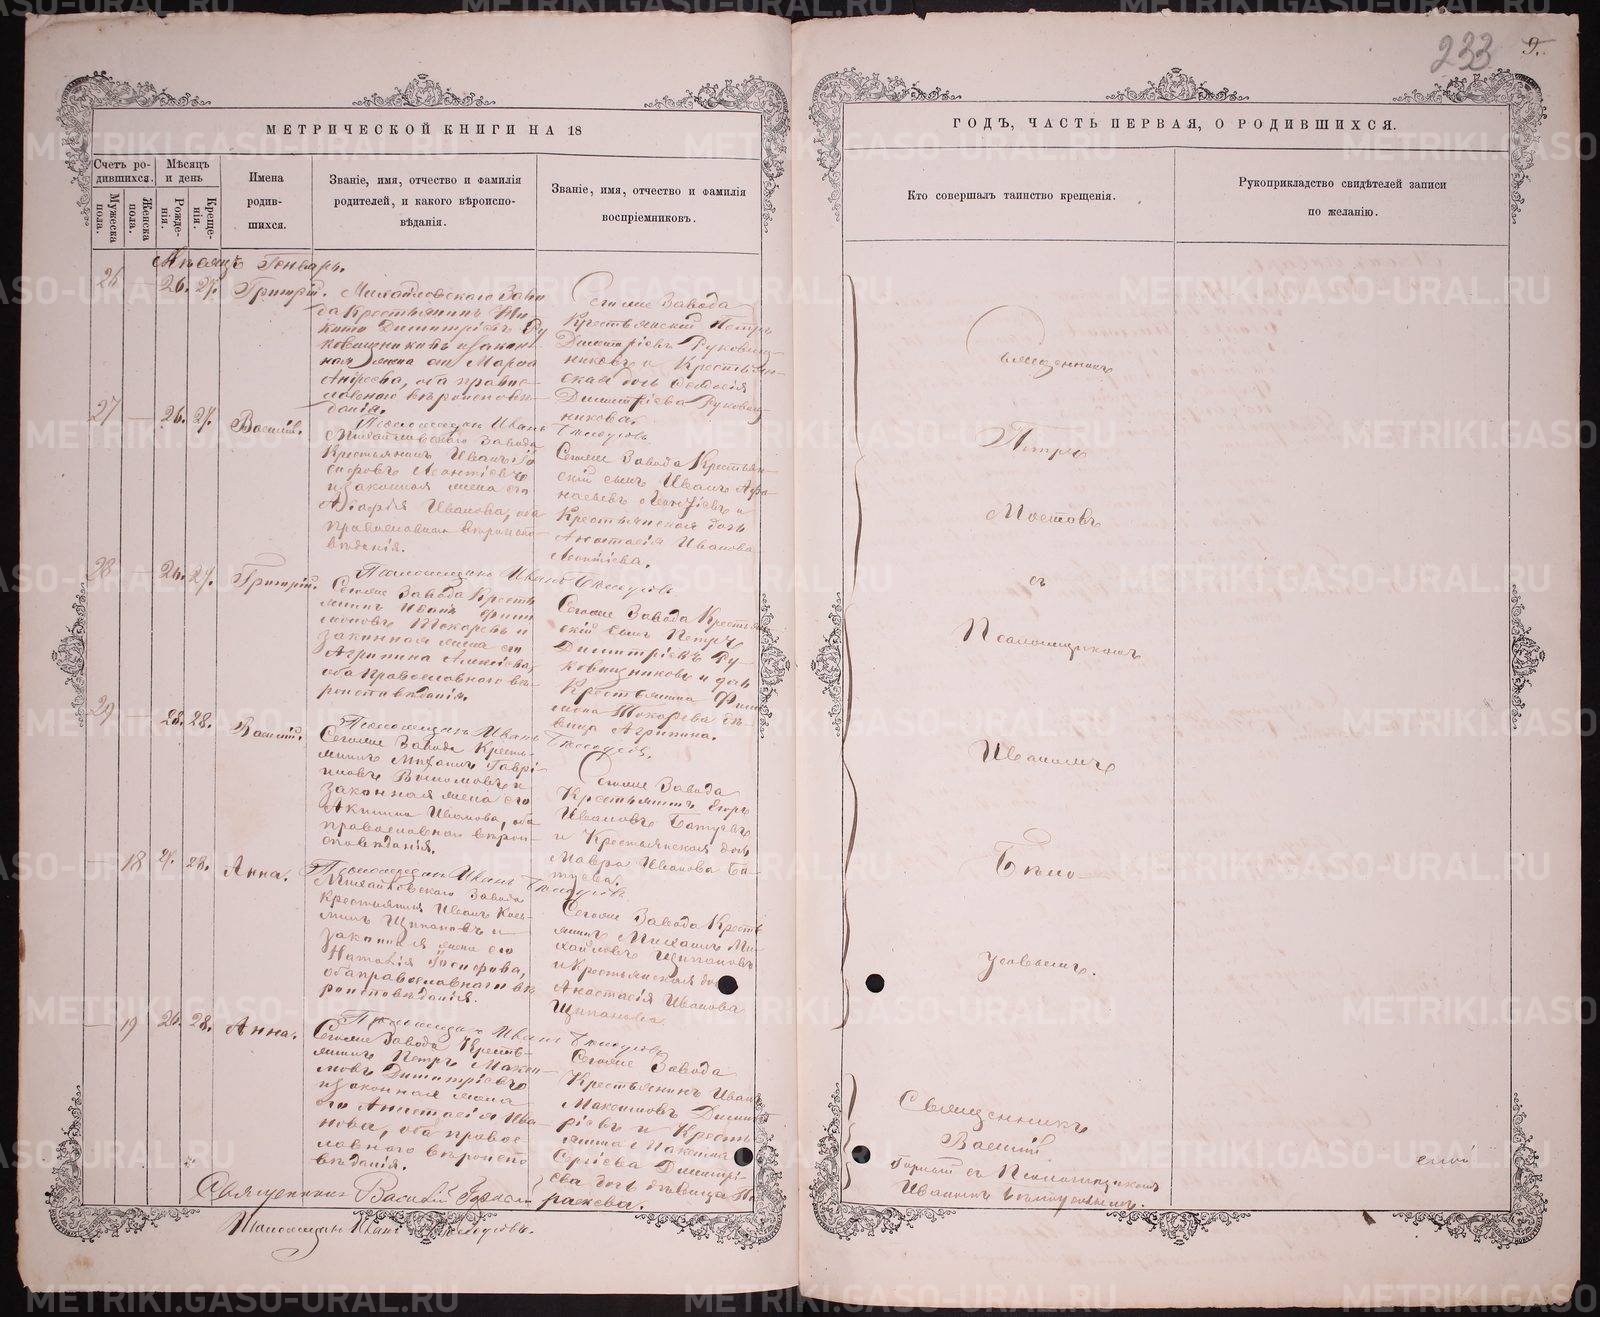 233
9.
МЕТРИЧЕСКОЙ КНИГИ НА 18
ГОДЪ, ЧАСТЬ ПЕРВАЯ, О РОДИВШИХСЯ.
Счетъ ро-
дившихся.
Мѣсяцъ
и день
Мужеска
пола.
Женска
пола.
Рожде-
нія.
Креще-
нія.
Имена
родив-
шихся.
Званіе, имя, отчество и фамилія
родителей, и какого вѣроиспо-
вѣданія.
Званіе, имя, отчество и фамилія
воспріемниковъ.
Кто совершалъ таинство крещенія.
Рукоприкладство свидѣтелей записи
по желанію.
Мѣсяцъ Генварь.
26 — 26. 27. Григорій.
Михайловскаго Заво
да Крестьянинъ
Димитріевъ Ру
ковишниковъ и закон-
ная жена его Марѳа
Андреева, оба право-
славнаго вѣроисповѣ-
данія.
Сегоже Завода
Крестьянскій Петръ
Димитріевъ Рукавиш-
никовъ и Крестьян-
ская дочь Ѳеодосія
Димитріева Рукавиш-
никова.
Псаломщикъ Иванъ Бѣлоусовъ
27 — 26. 27. Василій.
Михайловскаго Завода
Крестьянинъ Иванъ Іо
сифовъ Леонтіевъ
и законная жена его
Марія Иванова, оба
православнаго вѣроиспо-
вѣданія.
Сегоже Завода Крестьян-
скій сынъ Иванъ Афа-
насьевъ Леонтіевъ и
Крестьянская дочь
Анастасія Иванова
Леонтіева.
Псаломщикъ Иванъ Бѣлоусовъ
28 — 26. 27. Григорій.
Сегоже Завода Кресть
янинъ Иванъ Фили
моновъ Токаревъ и
законная жена его
Агрипина Алексіева,
оба Православнаго вѣ-
роисповѣданія.
Сегоже Завода Крестьян-
скій сынъ Петръ
Димитріевъ Ру-
ковишниковъ и дочь
Крестьянина Фили
мона Токарева дѣ-
вица Агрипина.
Псаломщикъ Иванъ Бѣлоусовъ.
29 — 28. 28. Василій.
Сегоже Завода Кресть-
янинъ Михаилъ Гаврі-
иловъ и
законная жена его
Акилина Иванова, оба
православнаго вѣрои-
сповѣданія.
Сегоже Завода
Крестьянинъ Егоръ
Ивановъ Батуевъ
и Крестьянская дочь
Мавра Иванова Ба-
туева.
Псаломщикъ Иванъ Бѣлоусовъ
— 18 27. 28. Анна.
Михайловскаго Завода
Крестьянинъ Иванъ Кось-
минъ Щипановъ и
законная жена его
Наталія Іосифова,
оба православнаго вѣ
роисповѣданія.
Сегоже Завода Кресть
янинъ Михаилъ Ми-
хайловъ Щипановъ
и Крестьянская дочь
Анастасія Иванова
Щипанова.
Псаломщикъ Иванъ Бѣлоусовъ
— 19 26. 28. Анна.
Сегоже Завода Кресть-
янинъ Петръ Макси-
мовъ Димитріевъ
и законная жена
его Анастасія Ива
нова, оба право-
славнаго вѣроиспо
вѣданія.
Сегоже Завода
Крестьянинъ Иванъ
Максимовъ Димит
ріевъ и Кресть
янина Максима
Сергіева Димитрі-
ева дочь дѣвица Па
раскева.
Священникъ Василій
Псаломщикъ Иванъ Бѣлоусовъ.
Священникъ
Петръ
Мостовъ
съ
Псаломщикомъ
Иваномъ
Бѣло-
усовымъ.
Священникъ
Василій
съ Псаломщикомъ
Иваномъ Бѣлоусовымъ.